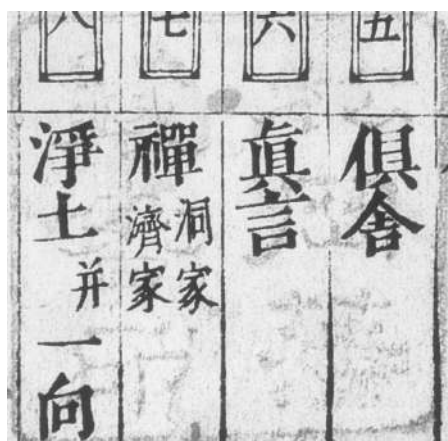 五
俱舎
六
眞言
七
禪 洞家 濟家
八
淨土 并 一向